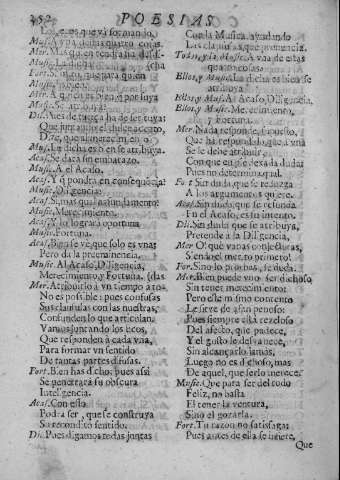 POESIAS
Music. A vna dicha quatro cosas.
Music. La dicha
Fort. Si mio, que para quien
Mer. A quien es bien se atribuya
Music. Se atribuya.
Dic. Pues de fuerza ha de ser tuya:
Que juntando el dulce acento,
Dize, que al Merecimiento
Mu. La dicha es bien se atribuya.
Acas. Se dara sin embarazo.
Music. A el Acaso.
Acas. Y pondra en consequencia:
Music. Diligencia.
Acas. Si, mas qual es fundamento:
Music. Merecimiento.
Acas. Y lo logrará oportuna
Music. Fortuna.
Acas. Bien se vé, que solo es vna;
Pero da la preeminencia.
Music. Al Acaso, Diligencia,
Merecimiento, y Fortuna.
Mer. Atribuirlo à vn tiempo à todas
No es possible; pues confusas
Sus clausulas con las nuestras,
Confunden lo que articulan.
Vamos juntando los ecos,
Que responden à cada vna,
Para formar vn sentido
De tantas partes difusas.
Fort. Bien has dicho; pues assi
Se penetrará su obscura
Inteligencia.
Acas. Con esto
Podrá ser, que se construya
Su recondito sentido.
Dic. Pues digamos todas juntas
Con la Musica, ayudando
Las clausulas, que pronuncia.
Todas, y la Music. A vna dicha estas
quatro cosas
Ellos, y Music. La dicha es bien se
atribuya
Ellos, y Music. Al Acaso, Diligencia,
Ellos, y Music. Merecimiento,
y Fortuna.
Mer. Nada responde, supuesto,
Que ha respondido, que à vna
Se le debe atribuir,
Con que en pie dexa la duda;
Pues no determina qual.
Fort. Sin duda, que se reduzga
A los argumentos quiere.
Acas. Sin duda, que se refunda
En el Acaso, es su intento.
Dil. Sin duda, que se atribuya,
Pretende à la Diligencia,
Mer. O! què vanas conjecturas,
Siendo el merito primero!
For. Sino lo pruebas, se duda.
Mer. Bien puede vno ser dichoso
Sin tener merecimiento:
Pero este mismo contento
Le sirve de afan penoso:
Pues siempre està rezeloso
Del afecto, que padece,
Y el gusto le desvanece,
Sin alcançarlo jamás,
Luego no es dichoso, mas
De aquel, que serlo merece.
Music. Que para ser del todo
Feliz, no basta
El tener la ventura,
Sino el gozarla.
Fort. Tu razon no satisfaga:
Pues antes de ella se infiere,
Que